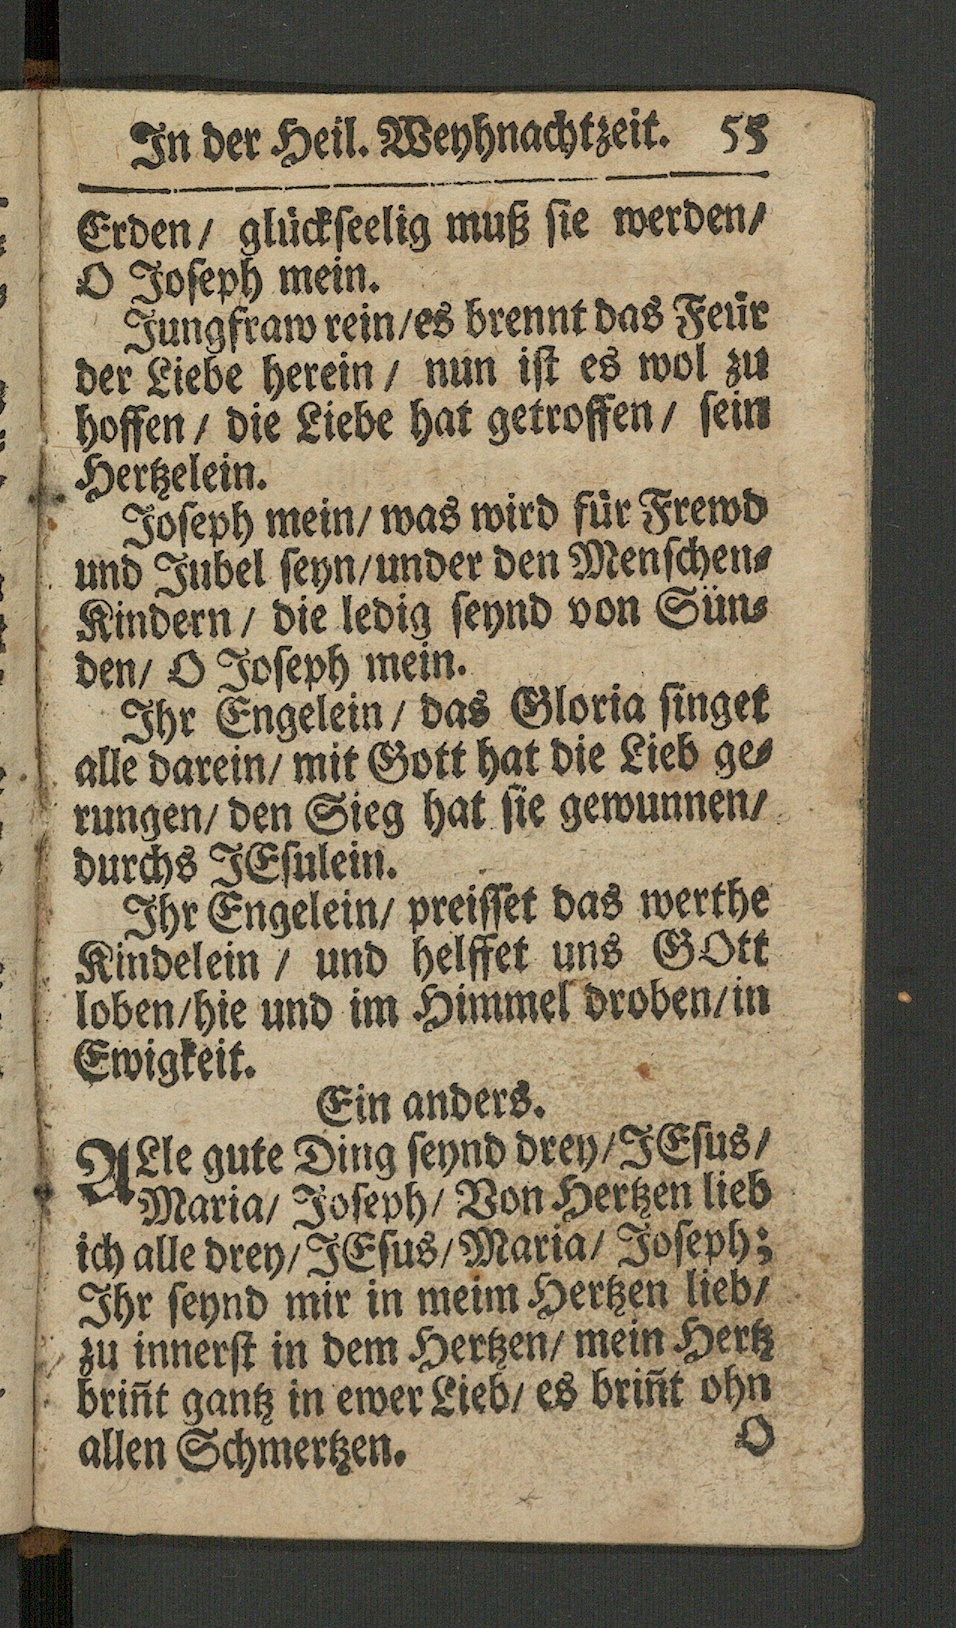 In der Heil. Weyhnachtzeit. 55
Erden/ glückseelig muß sie werden/
O Joseph mein.
Jungfraw rein/es brennt das Feür
der Liebe herein/ nun ist es wol zu
hoffen/ die Liebe hat getroffen/ sein
Hertzelein.
Joseph mein/ was wird für Frewd
und Jubel seyn/under den Menschen⸗
Kindern/ die ledig seynd von Sün⸗
den/ O Joseph mein.
Ihr Engelein/ das Gloria singet
alle darein/ mit Gott hat die Lieb ge⸗
rungen/ den Sieg hat sie gewunnen/
durchs JEsulein.
Ihr Engelein/ preisset das werthe
Kindelein / und helffet uns GOtt
loben/hie und im Himmel droben/in
Ewigkeit.
Ein anders.
ALle gute Ding seynd drey/JEsus/
Maria/ Joseph/ Von Hertzen lieb
ich alle drey/JEsus/Maria/ Joseph;
Ihr seynd mir in meim Hertzen lieb/
zu innerst in dem Hertzen/ mein Hertz
briñt gantz in ewer Lieb/ es briñt ohn
allen Schmertzen. O